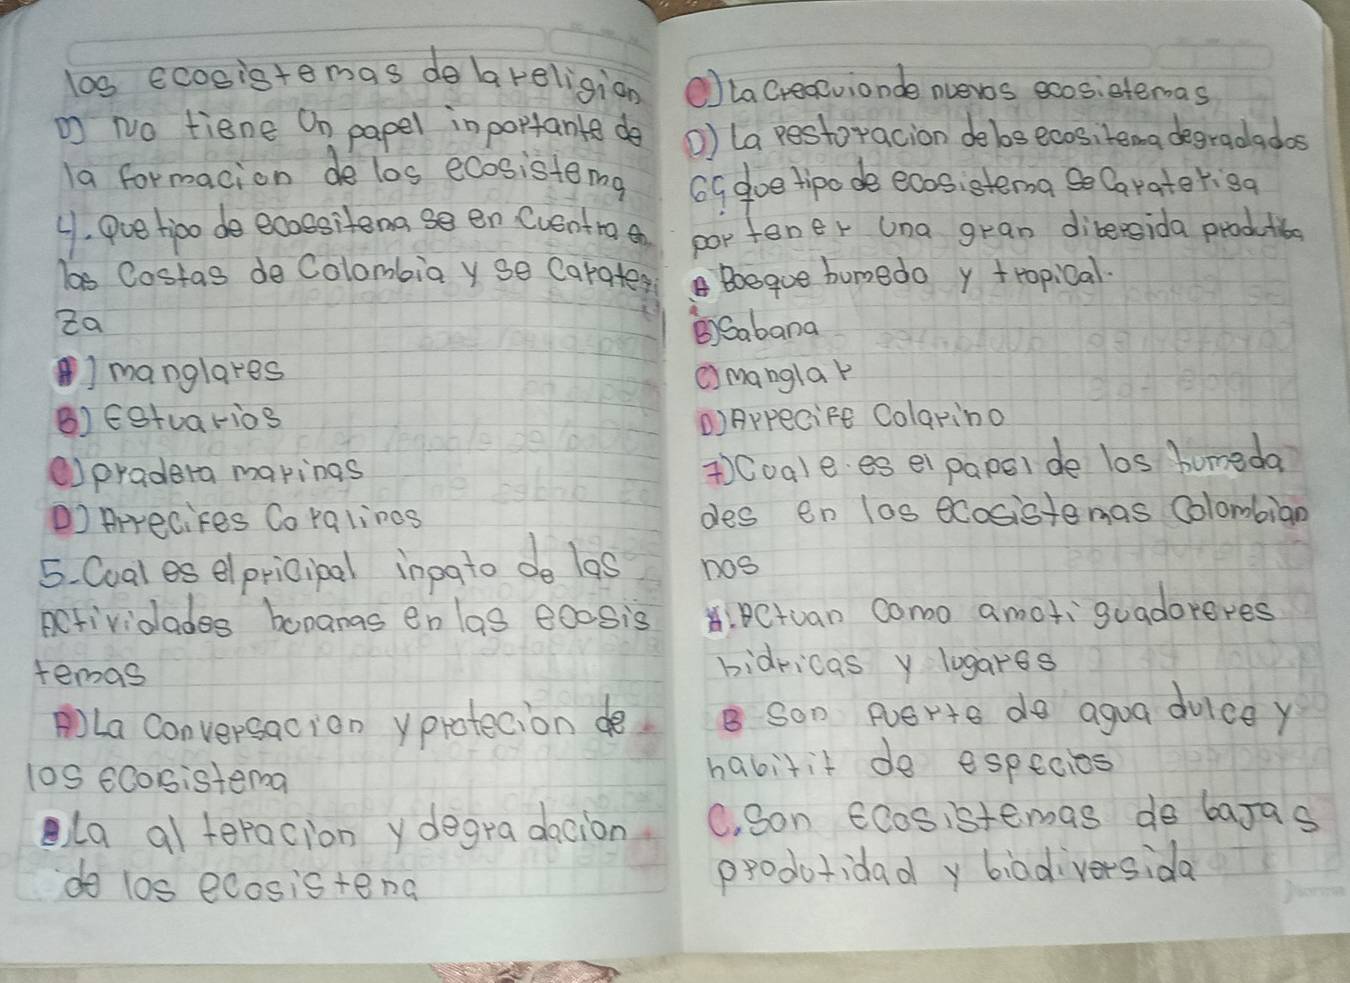 los ecosistemas de la religion
D) No tiene Un papel inportante de
la formacion de los ecosistema
4. Que tipo de ecossitena se en cventra en
las Costas de Colombia y se carateri
za
A) manglares
B) Estuarios
C) pradera marinas
D) Arrecifes Coralinos
5. Cual es el pricipal inpato de las
Actividades homanas en las ecosis
temas
A) La Conversacion y protecion de
los ecosistema
B) La alteracion y degradacion
de los ecosistena
C) La Creacvion de nuevos ecosistemas
D) La restoracion de los ecositema degradados
6 que tipo de ecosistema se Caraterisa
por tener una gran divereida produtiba
A Bosque humedo y tropical.
B) Sabana
C) manglar
D) Arrecife Colarino
7) Cuale es el papel de los humeda
des en las ecosistemas Colombian
nos
A. Actuan Como amotiguadoreres
hidricas y lugares
B Son Puerte de agua dulce y
habitit de especies
C. Son Ecosistemas de bajas
produtidad y biadiversida